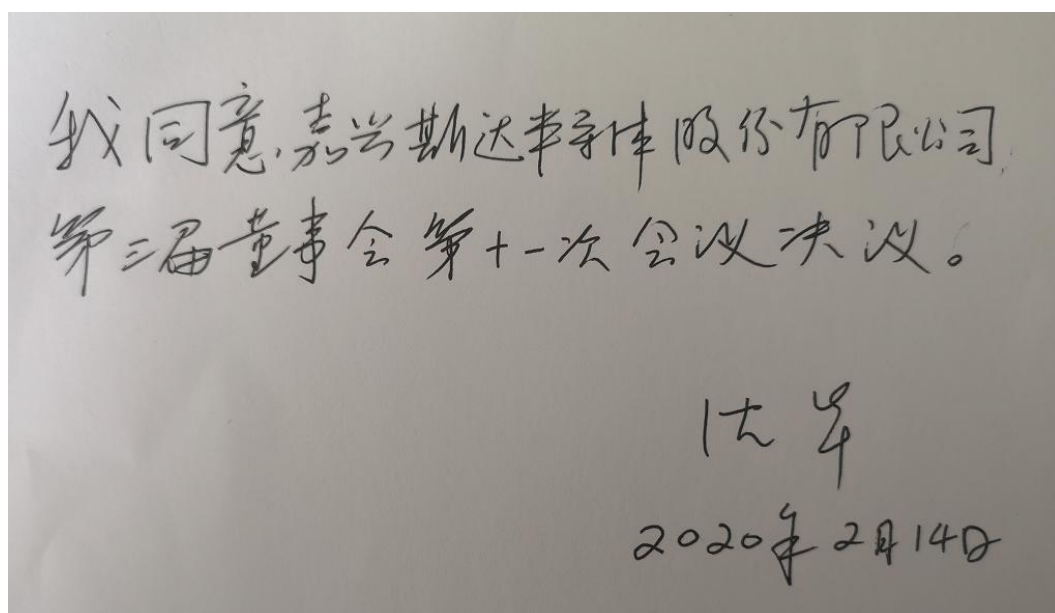 我同意嘉兴斯达半导体股份有限公司
第三届董事会第十一次会议决议。
沈华
2020年2月14日